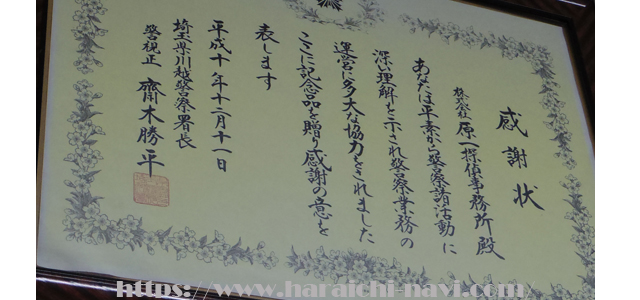 感謝状
株式会社 原一探偵事務所殿
あなたは平素から警察諸活動に
深い理解を示され警察業務の
運営に多大な協力をされました
ここに記念品を贈り感謝の意を
表します
平成十年十二月十一日
埼玉県川越警察署長
警視正 齋木勝平
https://www.haraichi-navi.com